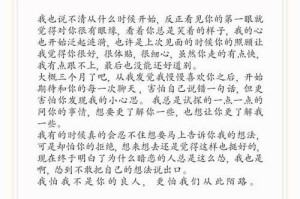 我也说不清从什么时候开始，反正看见你的第一眼就
觉得对你很有眼缘，看着你总是笑着的样子，我的心
也开始泛起涟漪，也许是上次见面的时候你的照顾让
我觉得你很好，很体贴，很细心，虽然你走的有点快，
我有点跟不上，最后也没能还好道别。
大概三个月了吧，从我发觉我慢慢喜欢你之后，开始
期待和你的每一次聊天，害怕自己说错一句话，但更
害怕你发现我的小心思。我总是试探的一点一点的
问你的事情，想要更了解你一些，也想让你了解我一
些。
我有的时候真的会忍不住想要马上告诉你我的想法，
可是却怕你的拒绝，想来想去还是觉得这样也挺好的，
现在终于明白了为什么暗恋的人总是这么怂，我也是
啊，怂到不敢把自己的想法说出口。
我怕我不是你的良人，更怕我们从此陌路。